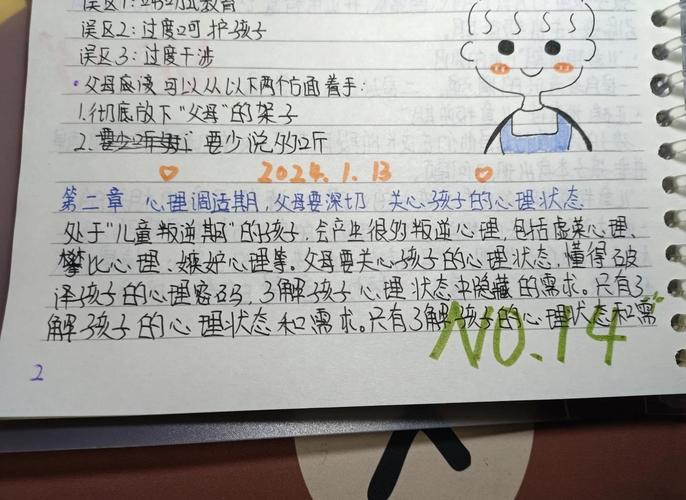 误区2:过度呵护孩子
误区3:过度干涉
·父母应该可以从以下两个方面着手:
1.彻底放下"父母"的架子
2. 要少说多听
2024.1.13
第二章 心理调适期,父母要深切 关心孩子的心理状态
处于"儿童叛逆期"的孩子,会产生很多叛逆心理,包括虚荣心理、
攀比心理、嫉妒心理等。父母要关心孩子的心理状态,懂得破
译孩子的心理密码,了解孩子心理状态中隐藏的需求。只有了
解孩子的心理状态和需求。只有了解孩子的心理状态和需
NO.14
2